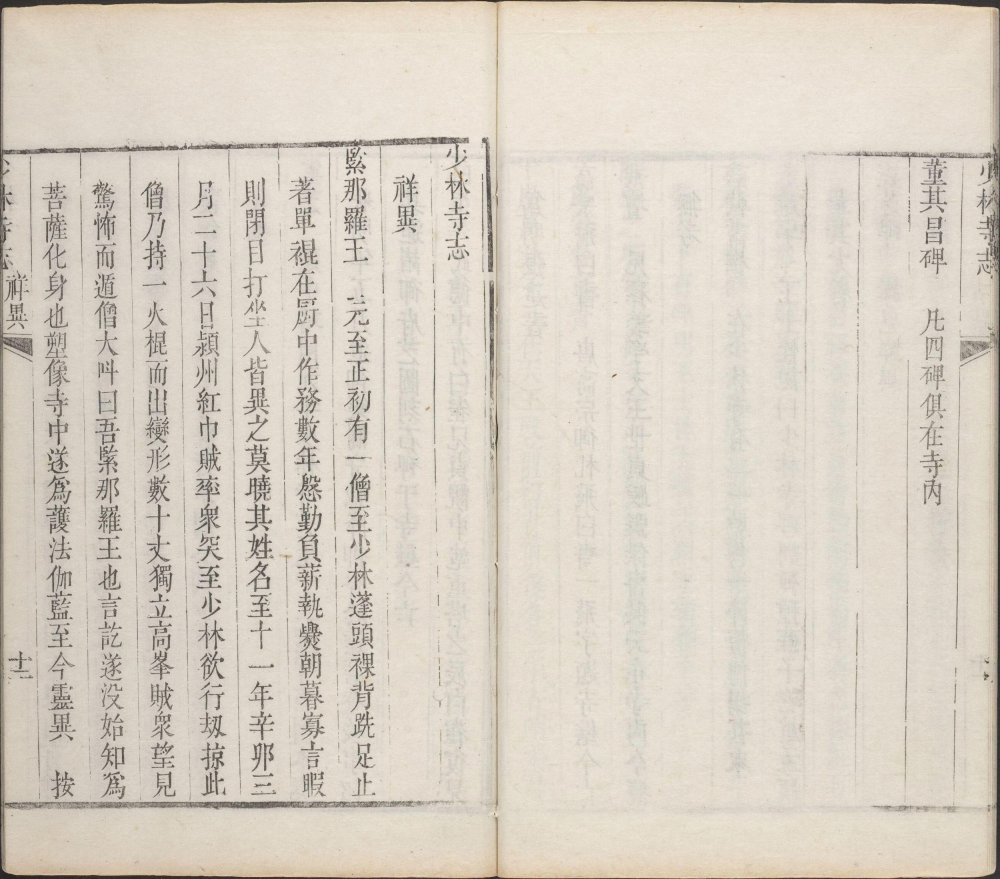 少林寺志
董其昌碑　凡四碑俱在寺內
少林寺志
祥異
緊那羅王　元至正初有一僧至少林蓬頭裸背跣足止
著單裩在厨中作務數年慇勤負薪執爨朝暮寡言暇
則閉目打坐人皆異之莫曉其姓名至十一年辛卯三
月二十六日潁州紅巾賊率衆突至少林欲行刼掠此
僧乃持一火棍而出變形數十丈獨立高峯賊衆望見
驚怖而遁僧大呌曰吾緊那羅王也言訖遂没始知爲
菩薩化身也塑像寺中遂爲護法伽藍至今靈異　按
少林寺志　祥異　十二